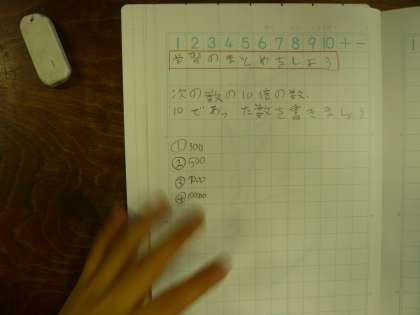 1 2 3 4 5 6 7 8 9 10 + −
学習のまとめをしよう
次の数の10倍の数、
10であった数を書きましょう
① 300
② 500
③
④